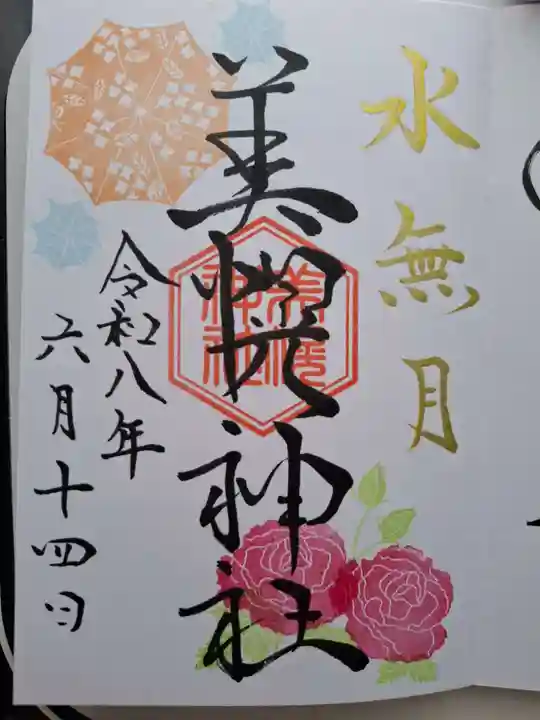 水無月
美幌神社
美幌神社
令和八年
六月十四日